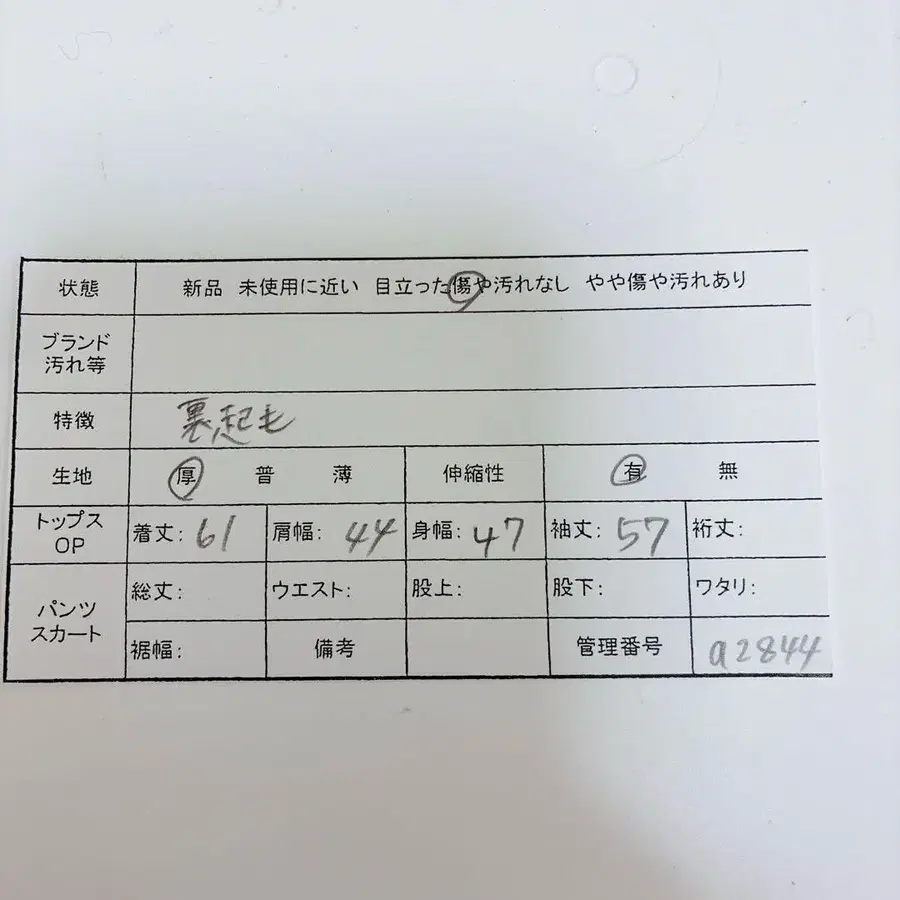 状態 新品 未使用に近い 目立った傷や汚れなし やや傷や汚れあり
ブランド
汚れ等
特徴 裏起毛
生地 厚 普 薄 伸縮性 有 無
トップス
OP
着丈: 61 肩幅: 44 身幅: 47 袖丈: 57 裄丈:
パンツ
スカート
総丈: ウエスト: 股上: 股下: ワタリ:
裾幅: 備考 管理番号 a2844